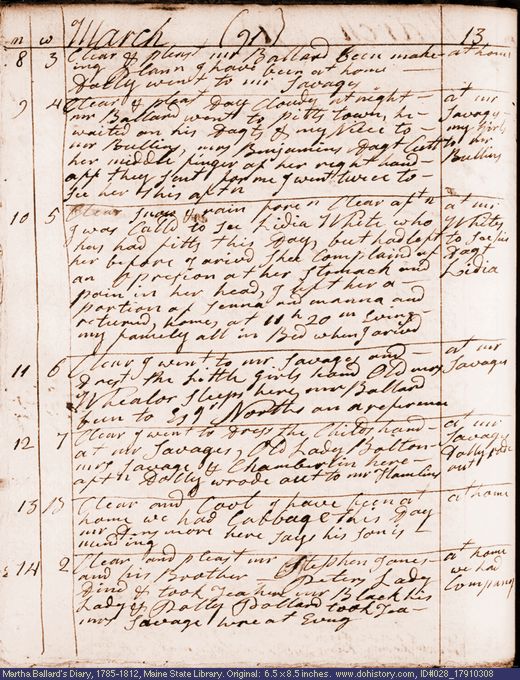 m w March (91) 13
8 3 Clear & pleast mr Ballard been make- at home
ing Plann I have been at home
Dolly went to mr Savages
9 4 Clear & pleast Day Cloudy at night at mr
mr Ballard went to Pitts town, he Savages
waited on his Dagts & my Niece to my Girls
mr Bullins, mrs Benjamins Dagt Cutt to mr
her middle finger of her right hand Bullins
aft they sent for me I went twice to
See her this aftn
10 5 Clear Snow & rain forn Clear aftn at mr
I was Calld to See Lidia White who Whites
has had fitts this Day, but had left to See his
her before I arived Shee Complaind of Dagt
an oppresion at her Stomach and Lidia
pain in her head, I left her a
portion of Senna and manna and
returnd home at 11 h 20 m Evng
my family all in Bed when I arivd
11 6 Clear I went to mr Savages and at mr
drest the Little Girls hand Old mrs Savages
Whealor Sleeps here, mr Ballard
been to Esqr Norths on a reference
12 7 Clear I went to Dress the Childs hand at mr
at mr Savages, Old Lady Bolton Savages
mrs Savage & Chamberlin here Dolly rode
aftn Dolly wrode out to mr Hamlins out
13 Clear and Cool I have been at at home
home we had Cabbage this Day
mr Densmore here Says his Son is
mending
14 2 Clear and pleast mr Stephen Jones at home
and his Brother Peters Lady we had
Dind & took Tea here mr Black his Company
Lady & Polly Pollard took Tea
mrs Savage here at Evng
Martha Ballard's Diary, 1785-1812, Maine State Library. Original: 6.5 x 8.5 inches. www.dohistory.com, ID#028_17910308